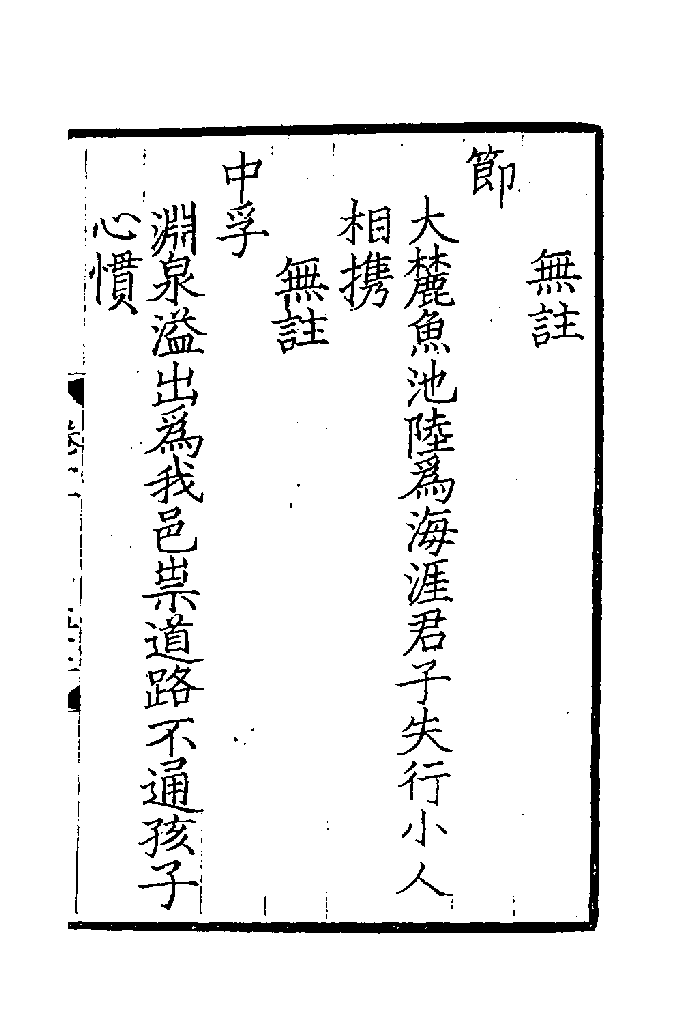 無註
節
大麓魚池陸爲海涯君子失行小人
相携
無註
中孚
淵泉溢出爲我邑祟道路不通孩子
心憒